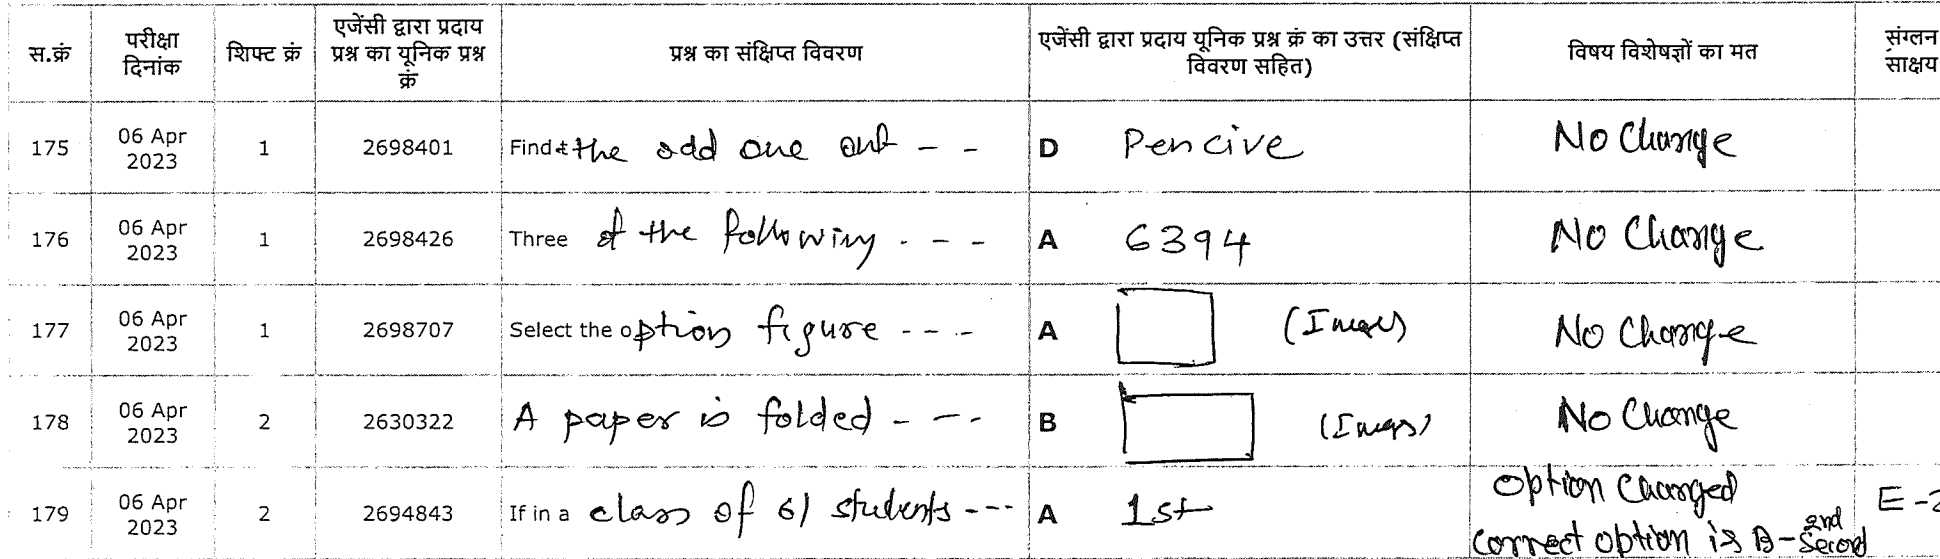 स.क्रं
परीक्षा
दिनांक
शिफ्ट क्रं
एजेंसी द्वारा प्रदाय
प्रश्न का यूनिक प्रश्न
क्रं
प्रश्न का संक्षिप्त विवरण
एजेंसी द्वारा प्रदाय यूनिक प्रश्न क्रं का उत्तर (संक्षिप्त
विवरण सहित)
विषय विशेषज्ञों का मत
संग्लन
साक्षय
175
06 Apr
2023
1
2698401
Find the odd one out - -
D Pencive
No Change
176
06 Apr
2023
1
2698426
Three of the following - - -
A 6394
No Change
177
06 Apr
2023
1
2698707
Select the option figure - - -
A
No Change
178
06 Apr
2023
2
2630322
A paper is folded - - -
B
No Change
179
06 Apr
2023
2
2694843
If in a class of 61 students - - -
A 1st
option changed
correct option is B - 2nd
Second
E-2